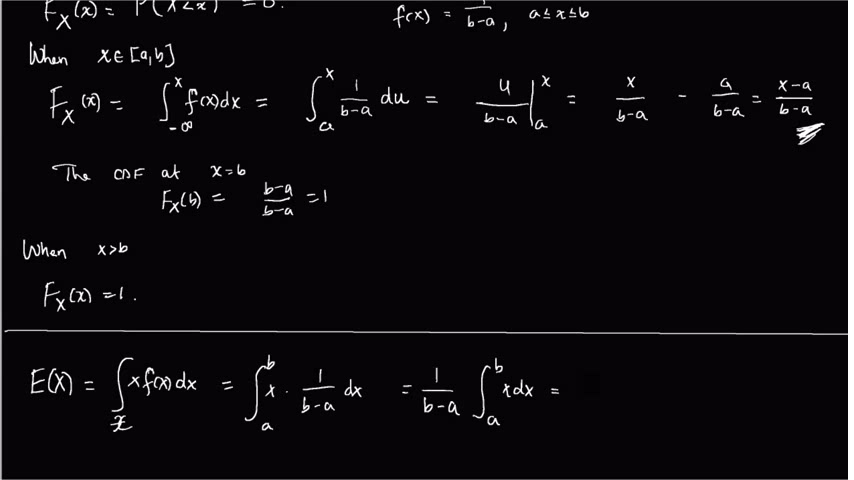 F_X(x) = P(X<x) = 0.
f(x) = 1/(b-a), a≤x≤b
When x∈[a,b]
F_X(x) = ∫_{-∞}^{x} f(x)dx = ∫_a^x 1/(b-a) du = u/(b-a) |_a^x = x/(b-a) - a/(b-a) = (x-a)/(b-a)
The CDF at x=b
F_X(b) = (b-a)/(b-a) = 1
When x>b
F_X(x) = 1.
E(X) = ∫_x x f(x) dx = ∫_a^b x · 1/(b-a) dx = 1/(b-a) ∫_a^b x dx =